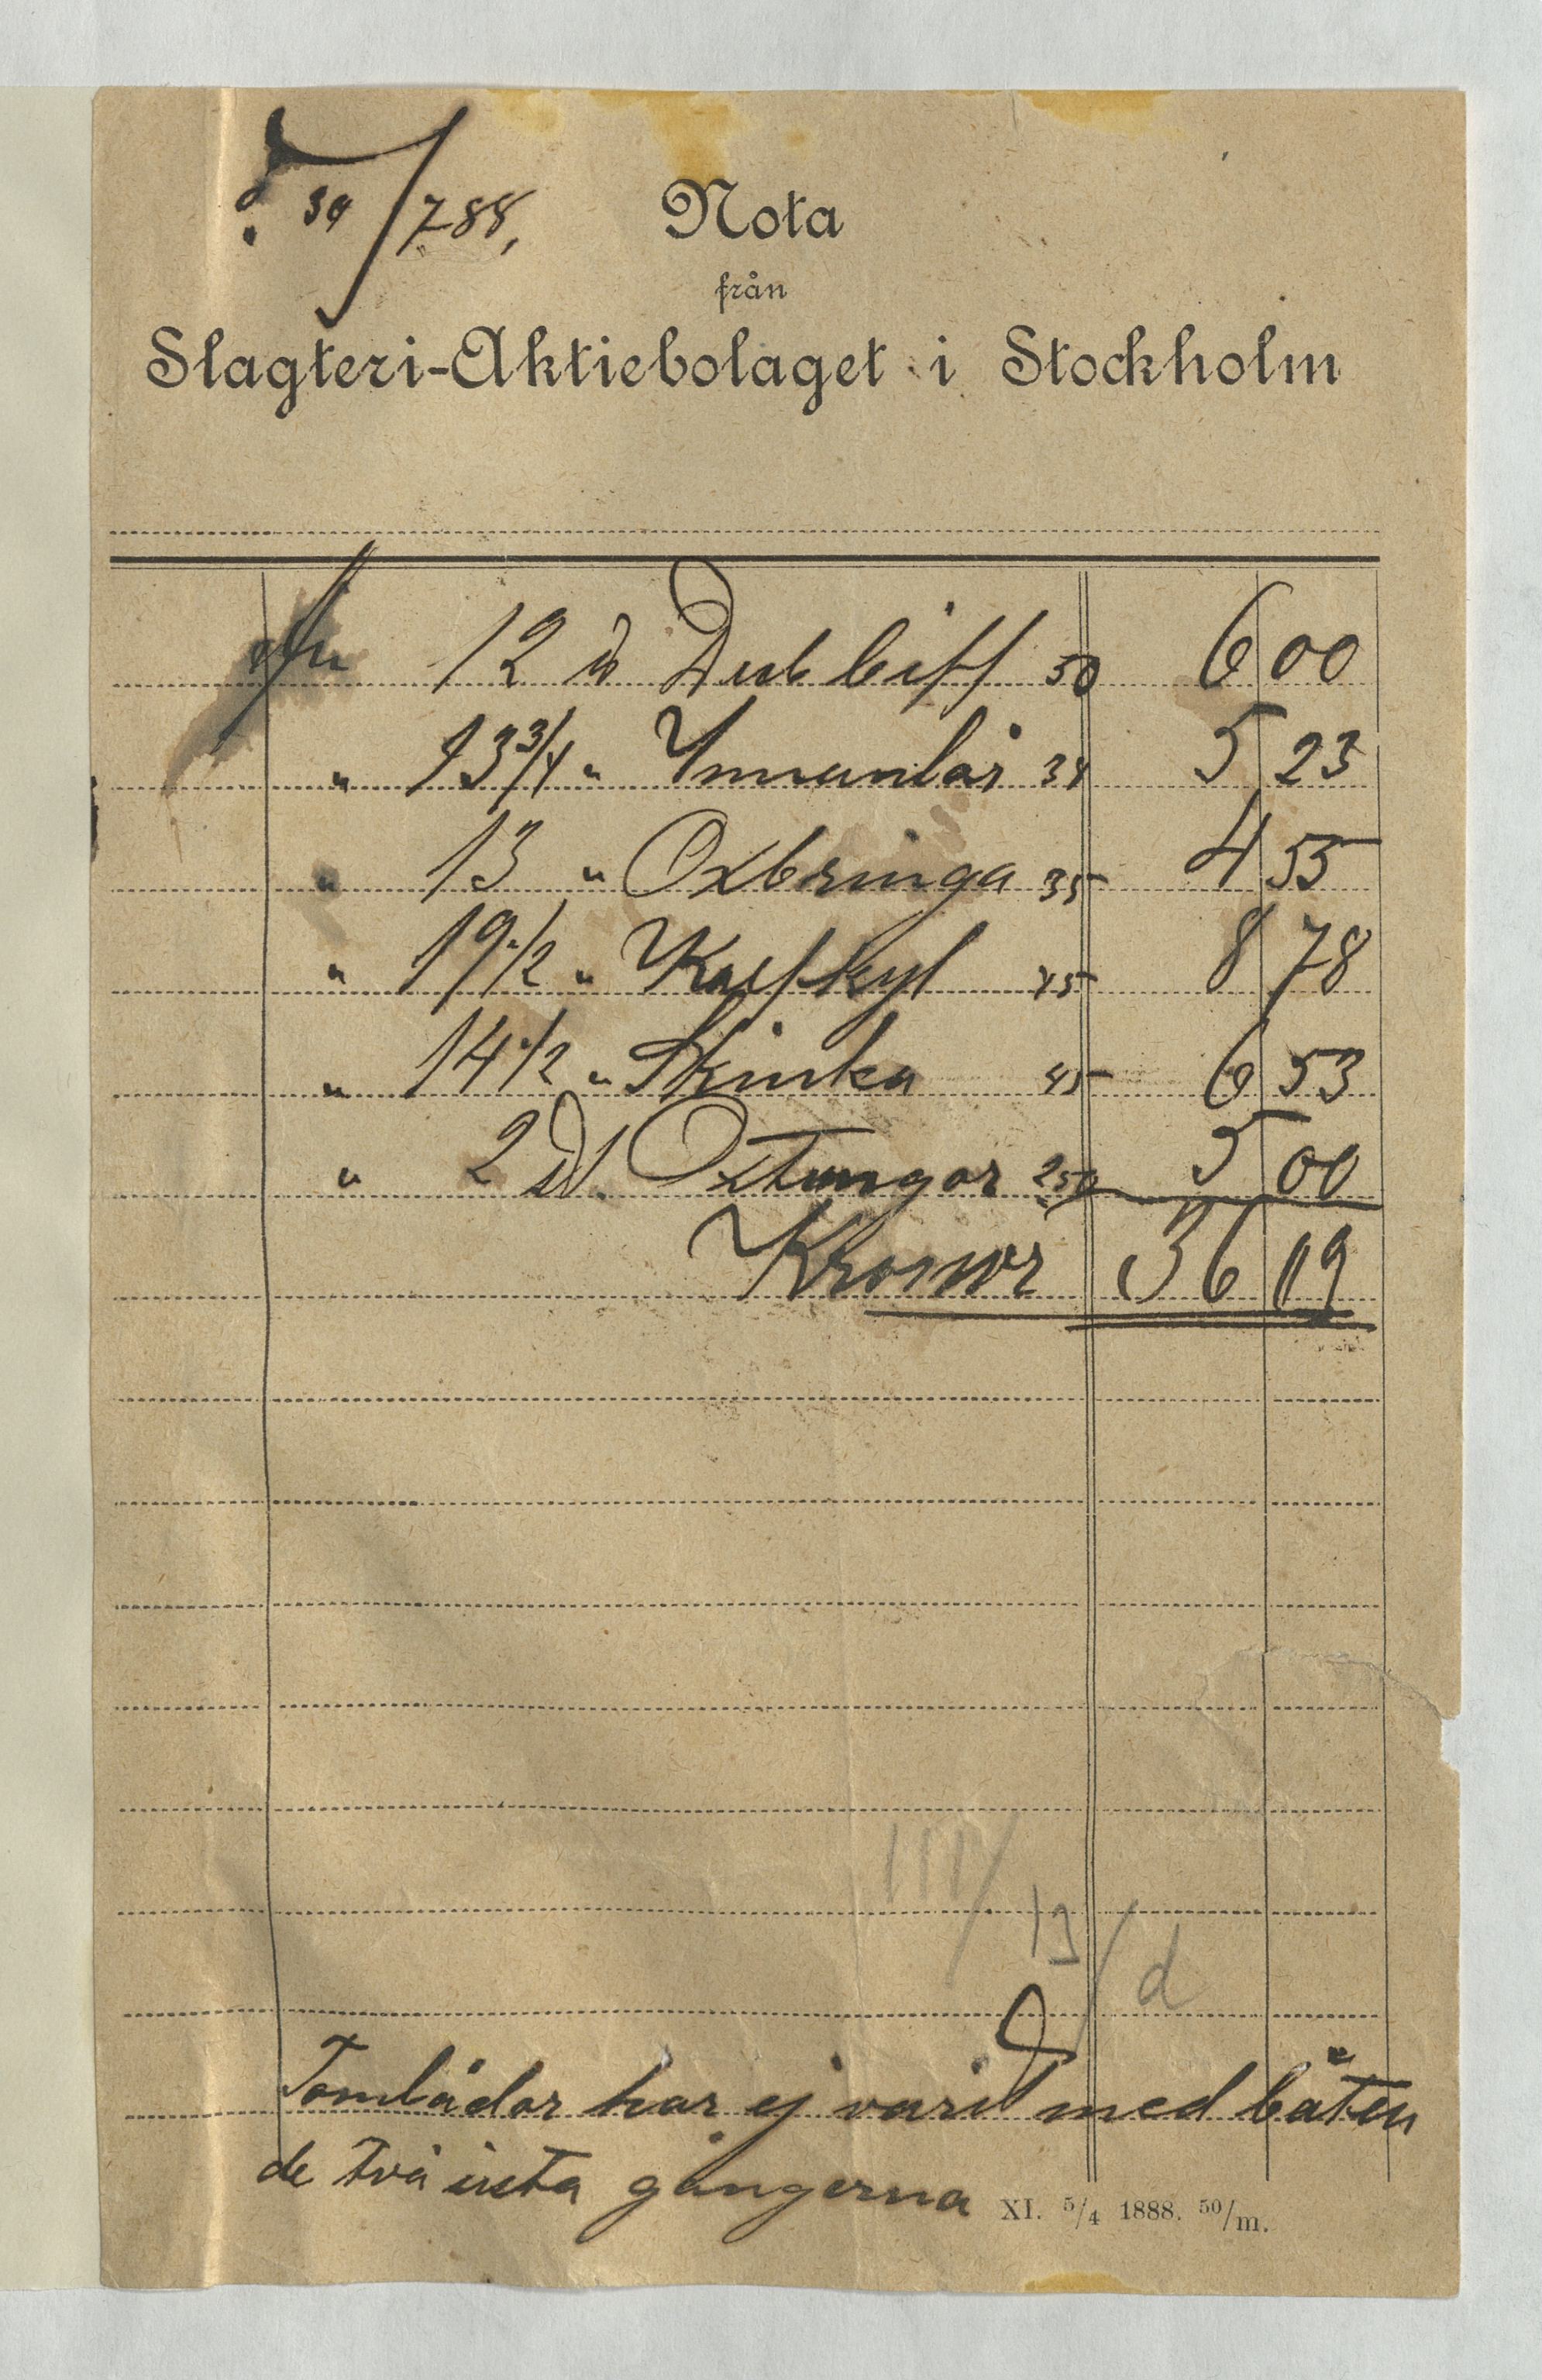 d. 30/7 88,
Nota
från
Slagteri-Aktiebolaget i Stockholm
An 12 ℔ Dubbiff 50 6 00
" 13 3/4 " Innanlår 38 5 23
" 13 " Oxbringa 35 4 55
" 19 1/2 " Kalfkyl 45 8 78
" 14 1/2 " Skinka 45 6 53
" 2 st. Oxtungor 250 5 00
Kronor 36 09
III/
13/d
Tomlådor har ej varit med båten
de två sista gångerna
XI. 5/4 1888. 50/m.